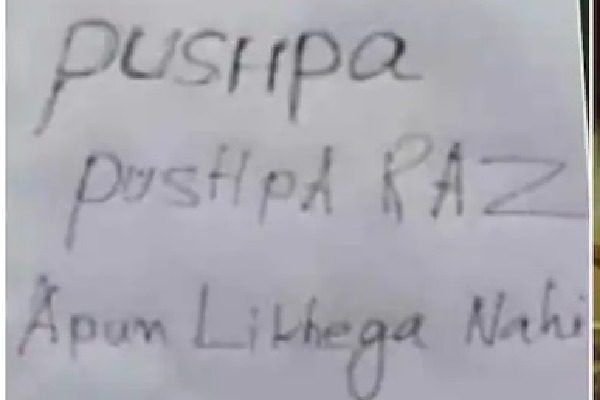 pUSHpa
pusHpA RAZ
Apun Likhega Nahi